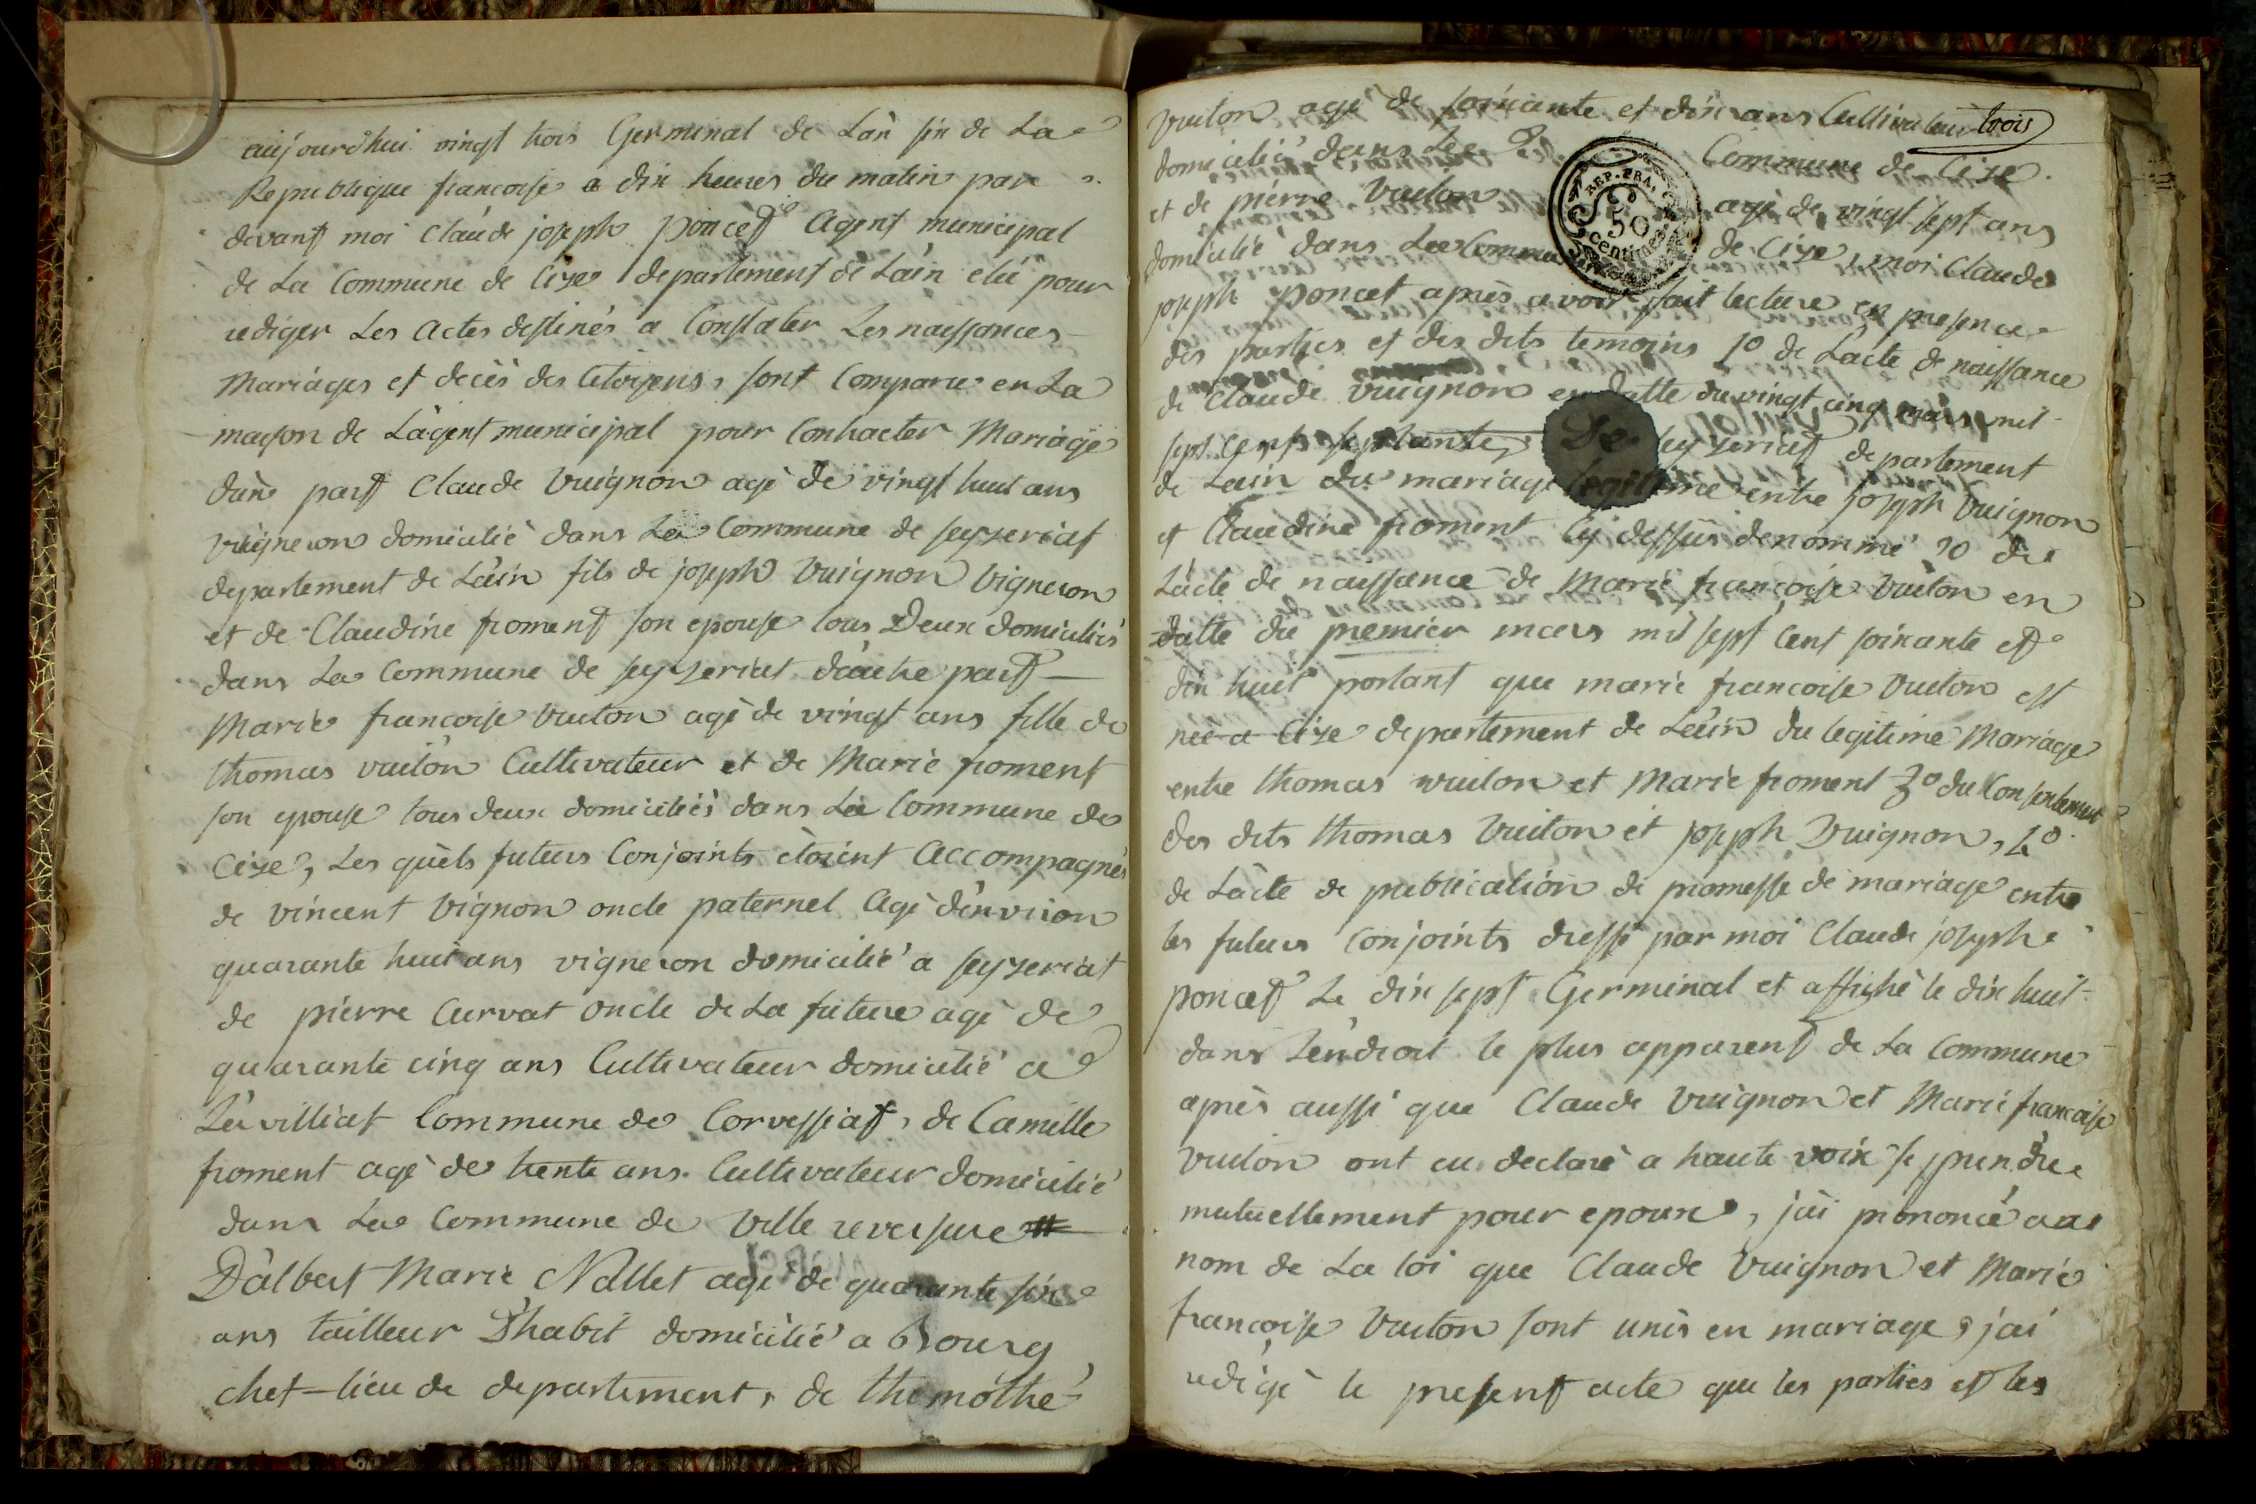 aujourd'hui vingt trois Germinal de Lan six de La
Republique francoise a dix heures du matin par
devant moi Claude joseph poncet Agent municipal
de La Commune de Cize departement de Lain elû pour
rediger Les actes destinés a Constater Les naissances
Mariages et decès des Citoyens, sont Comparu en La
maison de Lagent municipal pour Contracter Mariage
dune part Claude Vuignon agé de vingt huit ans
vigneron domicilié dans La Commune de seyzeriat
departement de Lain fils de joseph Vuignon Vigneron
et de Claudine froment son epouse tous Deux domiciliés
dans La Commune de seyzeriat dautre part
Marie francoise Vuiton agé de vingt ans fille de
thomas vuiton Cultivateur et de Marie froment
son epouse tous deux domiciliés dans La Commune de
Cize, Les quels futurs Conjoints étoient accompagnés
de vincent Vignon oncle paternel Agé denviron
quarante huit ans vigneron domicilié a seyzeriat
de pierre Curvat oncle de La future agé de
quarante cinq ans Cultivateur domicilié a
Lévilliat Commune de Corvessiat, de Camille
froment agé de trente ans Cultivateur domicilié
dans La Commune de Ville reversure
D'albert Marie Nallet agé de quarante six
ans tailleur D'habit domicilié a Bourg
chef-lieu de departement, de thimothé
Vuiton agé de soixante et dix ans Cultivateur trois
domicilié dans La Commune de Cize
REP. FRA.
50
centimes
et de pierre Vuiton agé de vingt sept ans
domicilié dans La Commune de Cize, moi Claude
joseph poncet après avoir fait lecture en presence
des parties et des dits temoins 1o de Lacte de naissance
de Claude Vuignon en datte du vingt cinq mars mil
sept cent septante De seyzeriat departement
de Lain du mariage legitime entre joseph Vuignon
et Claudine froment Cy dessus denommé 2o de
Lacte de naissance de Marie francoise Vuiton en
datte du premier mars mil sept cent soixante et
dix huit portant que marie francoise Vuiton est
née a Cize departement de Lain du legitime Mariage
entre thomas vuiton et Marie froment 3o du Consentement
des dits thomas Vuiton et joseph Vuignon, 4o
de Lacte de publication de promesse de mariage entre
les futurs Conjoints dressé par moi Claude joseph
poncet Le dix sept Germinal et affiché le dix huit
dans Lendroit le plus apparent de La Commune
après aussi que Claude Vuignon et Marie francoise
Vuiton ont eu declaré a haute voix se prendre
mutuellement pour epoux, j'ai prononcé au
nom de La loi que Claude Vuignon et Marie
francoise Vuiton sont unis en mariage, j'ai
redigé le present acte que les parties et les